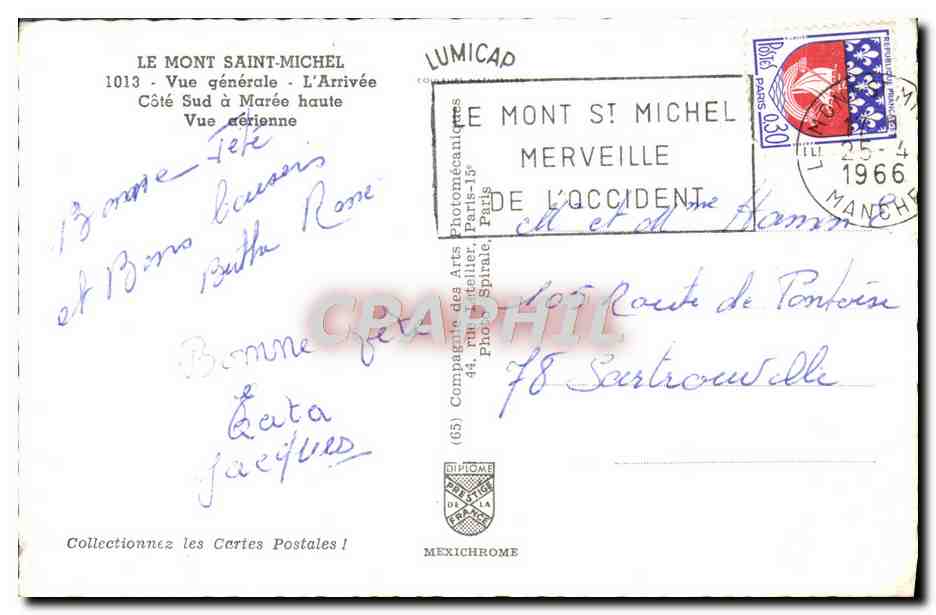 LE MONT SAINT-MICHEL
1013 - Vue générale - L'Arrivée
Côté Sud à Marée haute
Vue aérienne
Bonne Fête
et Bons baisers
Berthe René
Bonne fête
Tata
Jacques
Collectionnez les Cartes Postales !
LUMICAP
COULEURS NATURELLES
(65) Compagnie des Arts Photomécaniques
44, rue Letellier, Paris-15e
Photo Spirale, Paris
DIPLOME
PRESTIGE
DE LA
FRANCE
MEXICHROME
LE MONT St MICHEL
MERVEILLE
DE L'OCCIDENT
POSTES
REPUBLIQUE FRANÇAISE
PARIS 0,30
LE MONT
25-4
1966
MANCHE
Mr et Mme
Route de Pontoise
78 Sartrouville
CPAPHIL